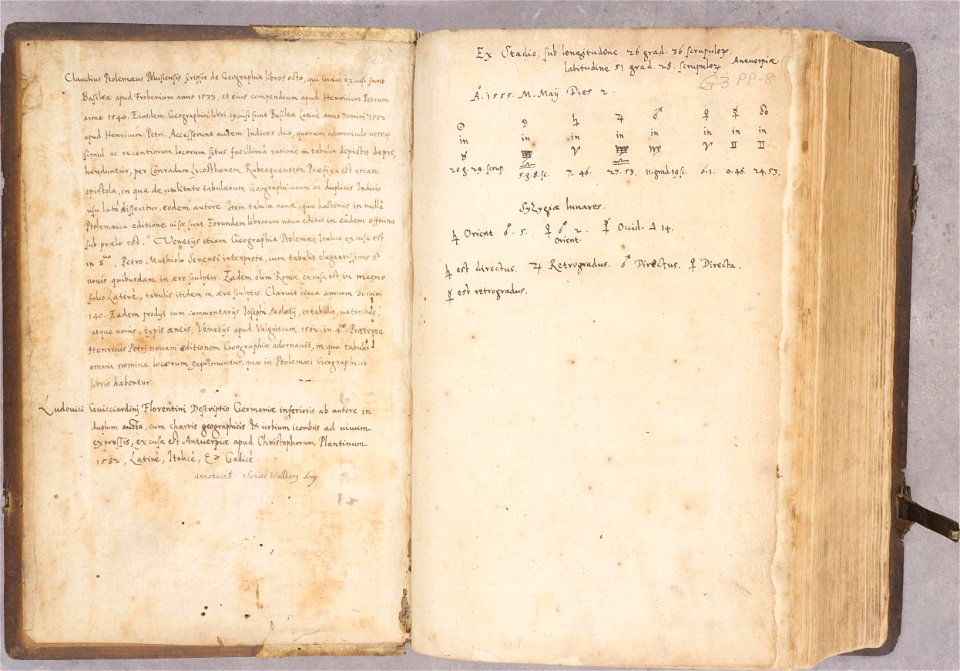 Claudius Ptolemæus Pelusiensis scripsit de Geographia libros octo, qui Græce excusi sunt
Basileæ apud Frobenium anno 1533, et eius compendium apud Henricum Petrum
anno 1540. Eiusdem Geographici libri excusi sunt Basileæ Latine anno Domini 1552
apud Henricum Petri. Accesserunt autem Indices duo, quorum adminiculo veterū
simul ac recentiorum locorum situs facillima ratione in tabulis depictis depre,
henduntur, per Conradum Lycosthenem, Rubeaquensem. Præfixa est etiam
epistola, in qua de utilitate tabularum Geographicarum ac duplicis Indicis
usu late disseritur, eodem autore. Item tabulæ novæ, quæ hactenus in nulla
Ptolemaica editione visæ sunt. Eorundem librorum nova editio in eâdem officina
sub prælo est. Venetijs etiam Geographia Ptolemæi Italice excusa est
in 8uo. Petro Mathiolo Senensi interprete, cum tabulis elegantissimis &
novis quibusdam in ære sculptis. Eadem olim Romæ excusa est in magno
folio Latinè, tabulis itidem in ære sculptis. Claruit circa annum Domini
140. Eadem prodijt cum commentarijs Josephi Moletij, et tabulis, veteribus
atque novis, typis æneis, Venetijs apud Valgrisum 1562, in 4to. Præterea
Henricus Petri novam editionem Geographiæ adornavit, in qua tabulis
omnia nomina locorum exprimuntur, quæ in Ptolemæi Geographicis
libris habentur.
Ludovici Guicciardinj Florentini Descriptio Germaniæ inferioris ab autore in
duplum aucta, cum chartis geographicis & urbium iconibus ad vivum
expressis, excusa est Antverpiæ apud Christophorum Plantinum
1582, Latinè, Italicè, & Galicè.
Samuel
Ex Stadio, sub longitudine 26 grad. 36 scrupulor.
latitudine 51 grad. 28. scrupulor Antverpiæ
G3 PP-8
Aº. 1555. M. Maij Dies 2.
☉ ☽ ♄ ♃ ♂ ♀ ☿ ☊
in in in in in in in in
♉ ♒ ♈ ♒ ♍ ♈ ♊ ♊
20 g. 29. scrup. 5 g. 8. sc. 7. 46. 27. 53. 11. grad. 19. s. 6. 1. 0. 46. 24. 53.
Syzygiæ lunares.
♄ Orient ☌. 5. ♀ ☍ 2. ☿ Occid. Δ 14.
Orient.
♄ est directus. ♃ Retrogradus. ♂ Directus. ♀ Directa.
☿ est retrogradus.